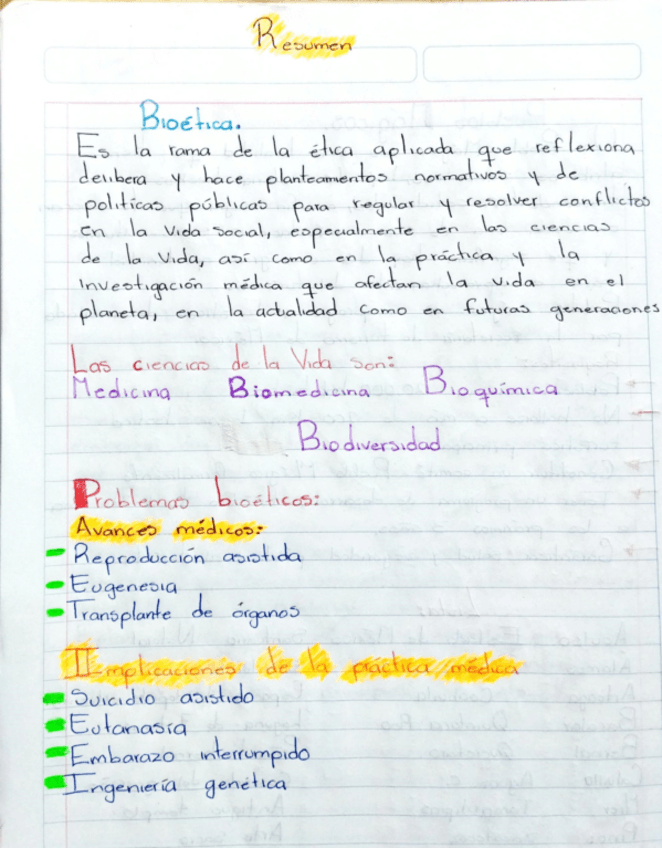 Resumen
Bioética.
Es la rama de la ética aplicada que reflexiona
delibera y hace planteamentos normativos y de
políticas públicas para regular y resolver conflictos
en la vida social, especialmente en las ciencias
de la vida, así como en la práctica y la
Investigación médica que afectan la vida en el
planeta, en la actualidad como en futuras generaciones
Las ciencias de la Vida son:
Medicina Biomedicina Bioquímica
Biodiversidad
Problemas bioéticos:
Avances médicos:
Reproducción asistida
Eugenesia
Transplante de órganos
Implicaciones de la práctica médica
Suicidio asistido
Eutanasia
Embarazo interrumpido
Ingeniería genética